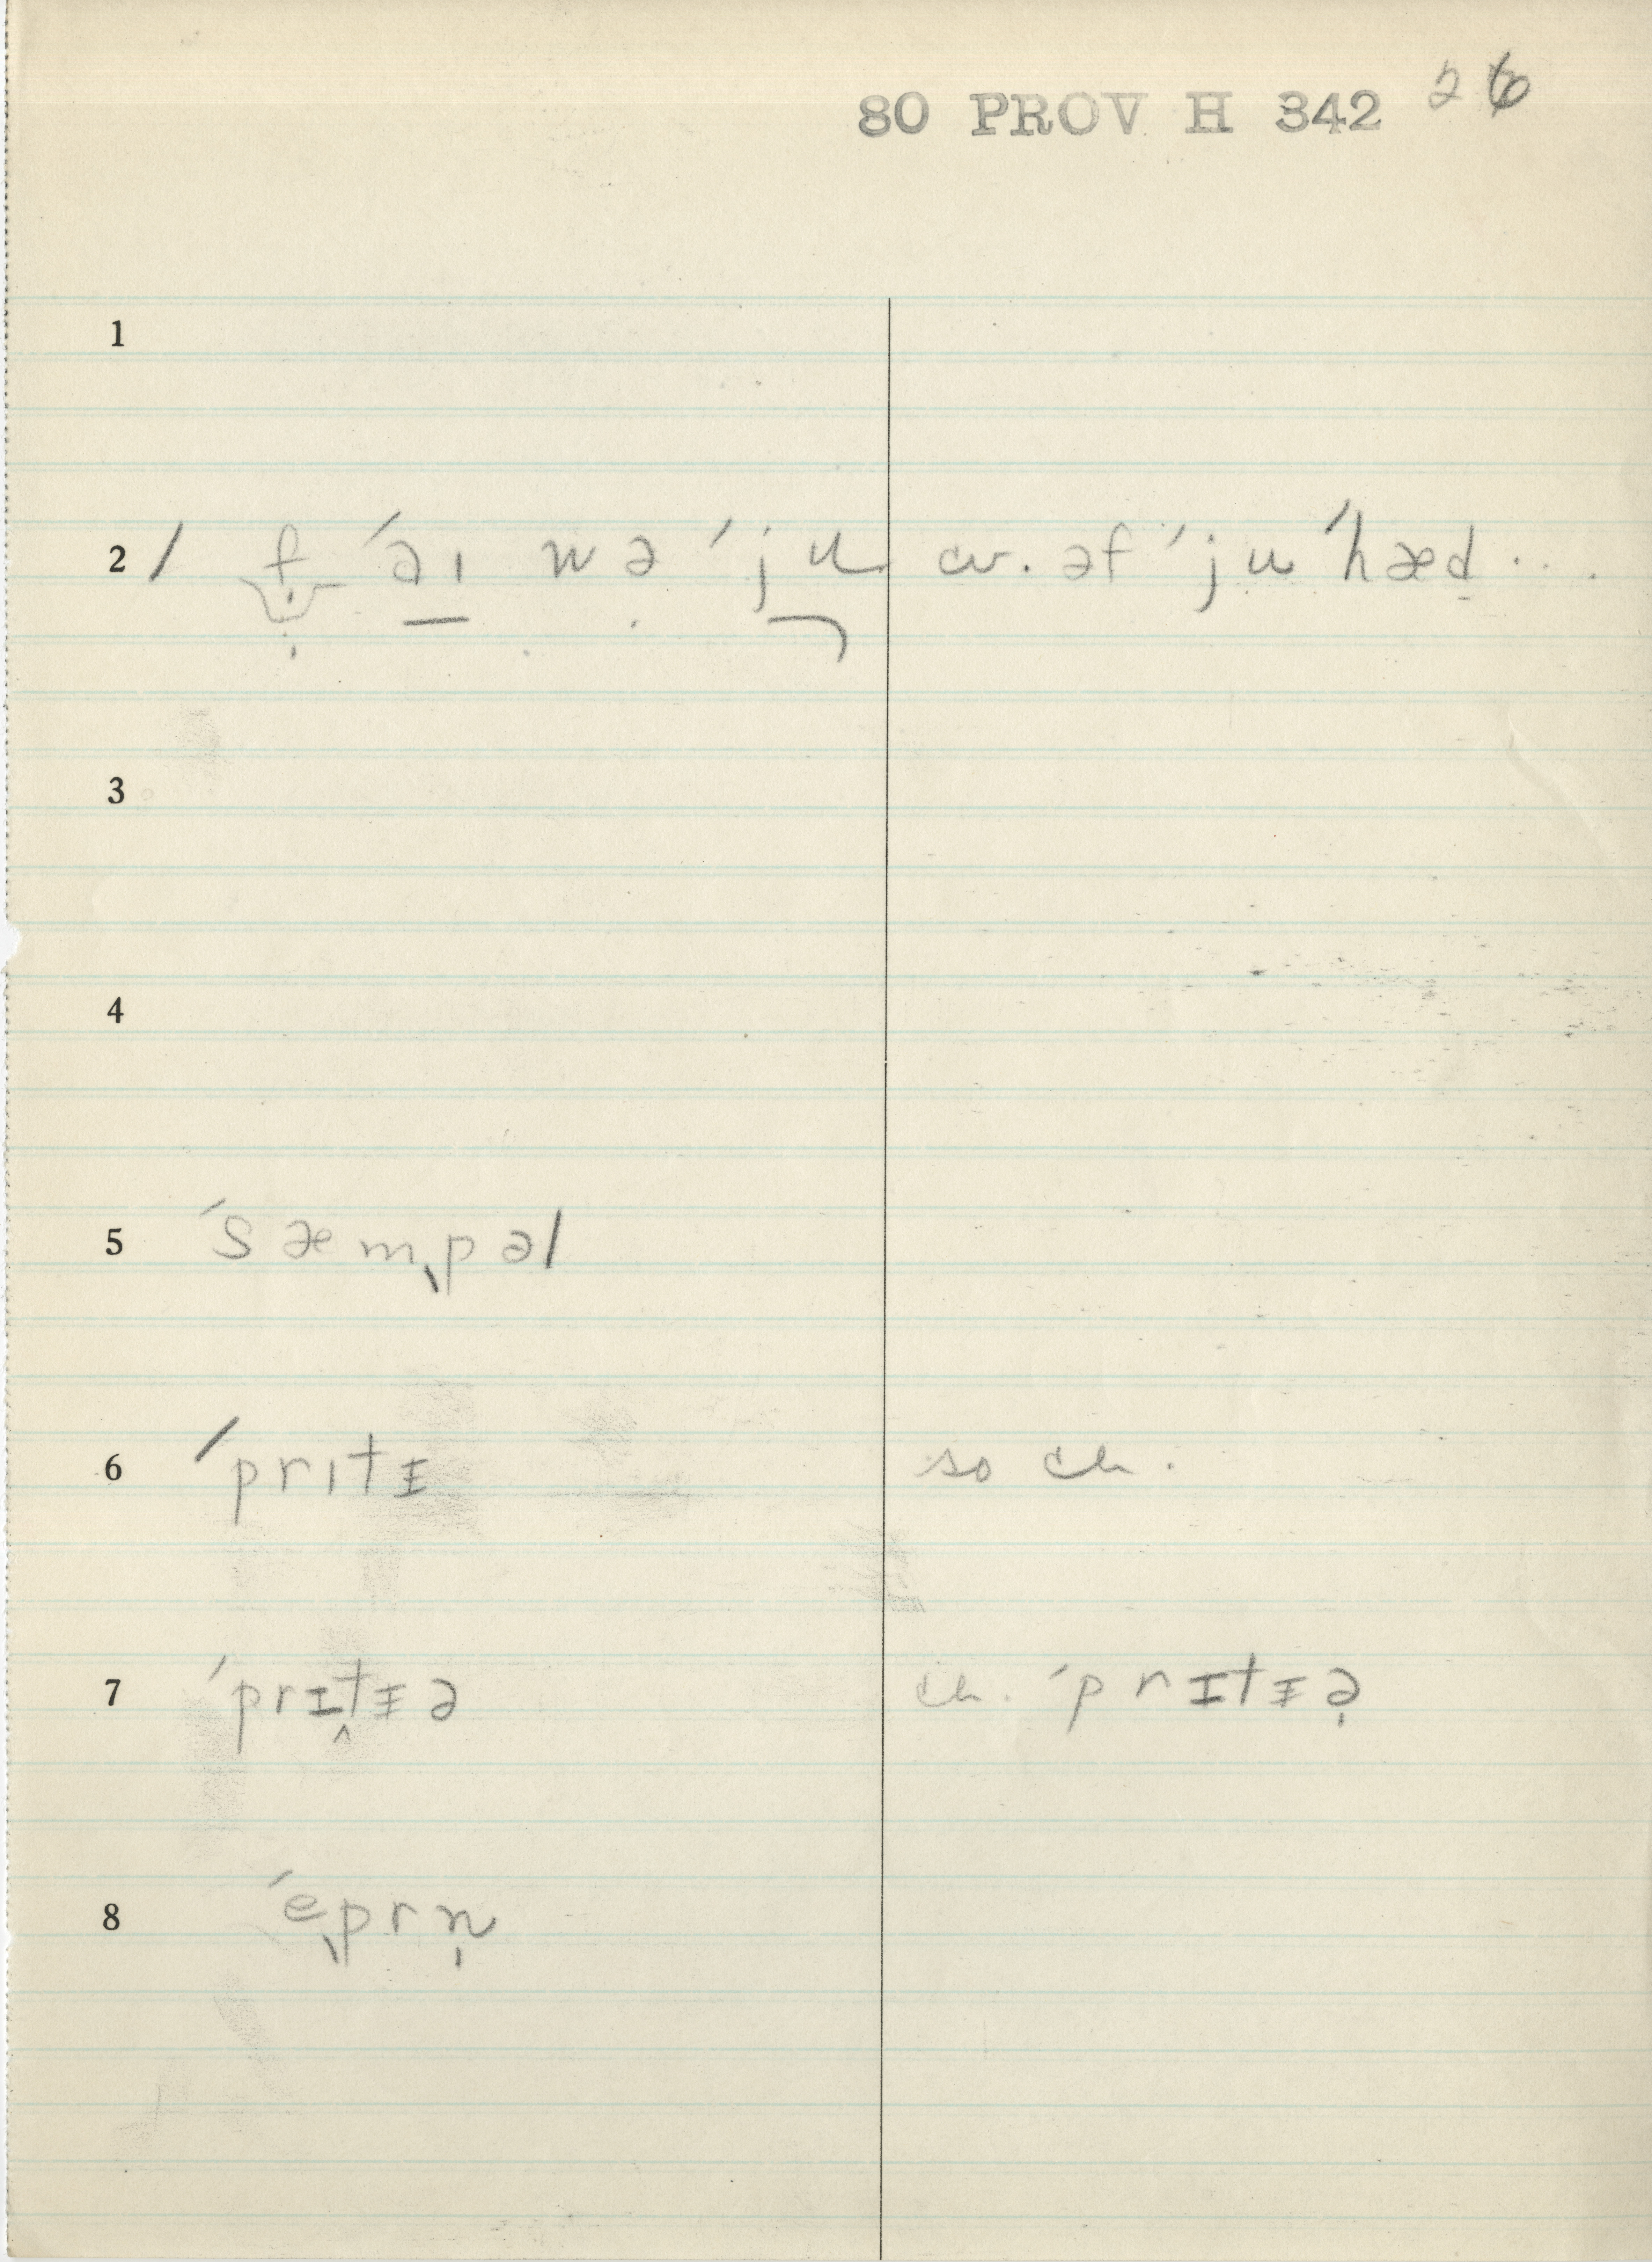 80 PROV H 342 26
1
2 / f ˈəɪ wə ˈju cv. əf ˈju ˈhæd...
3
4
5 ˈsæmpəl
6 ˈprɪtᵻ so ch.
7 ˈprɪt̬ᵻə ch. ˈprɪtᵻə̣
8 ˈeprn̩